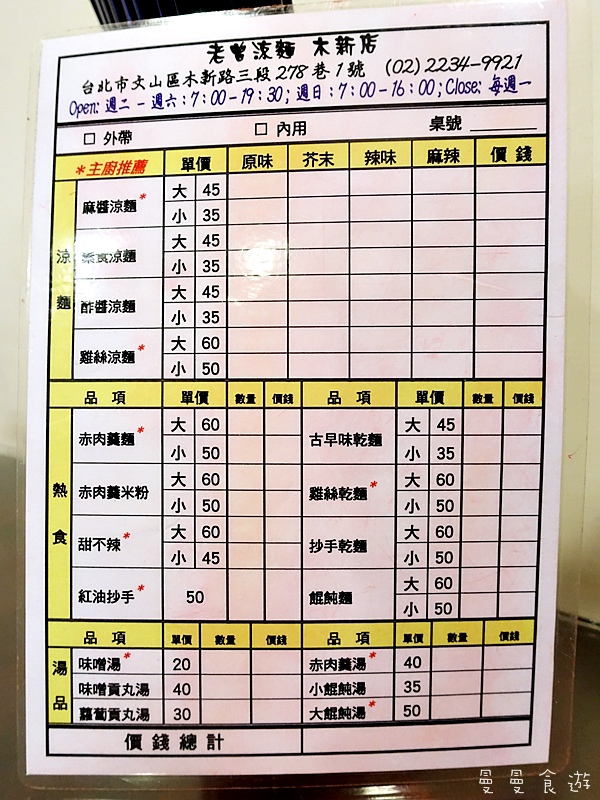 老曾涼麵 木新店
台北市文山區木新路三段278巷1號 (02)2234-9921
Open: 週二 - 週六:7:00-19:30; 週日:7:00-16:00; Close: 每週一
□ 外帶 □ 內用 桌號 ______
*主廚推薦 單價 原味 芥末 辣味 麻辣 價錢
涼麵
麻醬涼麵* 大 45
小 35
素食涼麵 大 45
小 35
酢醬涼麵 大 45
小 35
雞絲涼麵* 大 60
小 50
品項 單價 數量 價錢 品項 單價 數量 價錢
熱食
赤肉羹麵* 大 60 古早味乾麵 大 45
小 50 小 35
赤肉羹米粉 大 60 雞絲乾麵* 大 60
小 50 小 50
甜不辣* 大 60 抄手乾麵 大 60
小 45 小 50
紅油抄手* 50 餛飩麵 大 60
小 50
品項 單價 數量 價錢 品項 單價 數量 價錢
湯品
味噌湯* 20 赤肉羹湯* 40
味噌貢丸湯 40 小餛飩湯 35
蘿蔔貢丸湯 30 大餛飩湯* 50
價錢總計
曼曼食遊